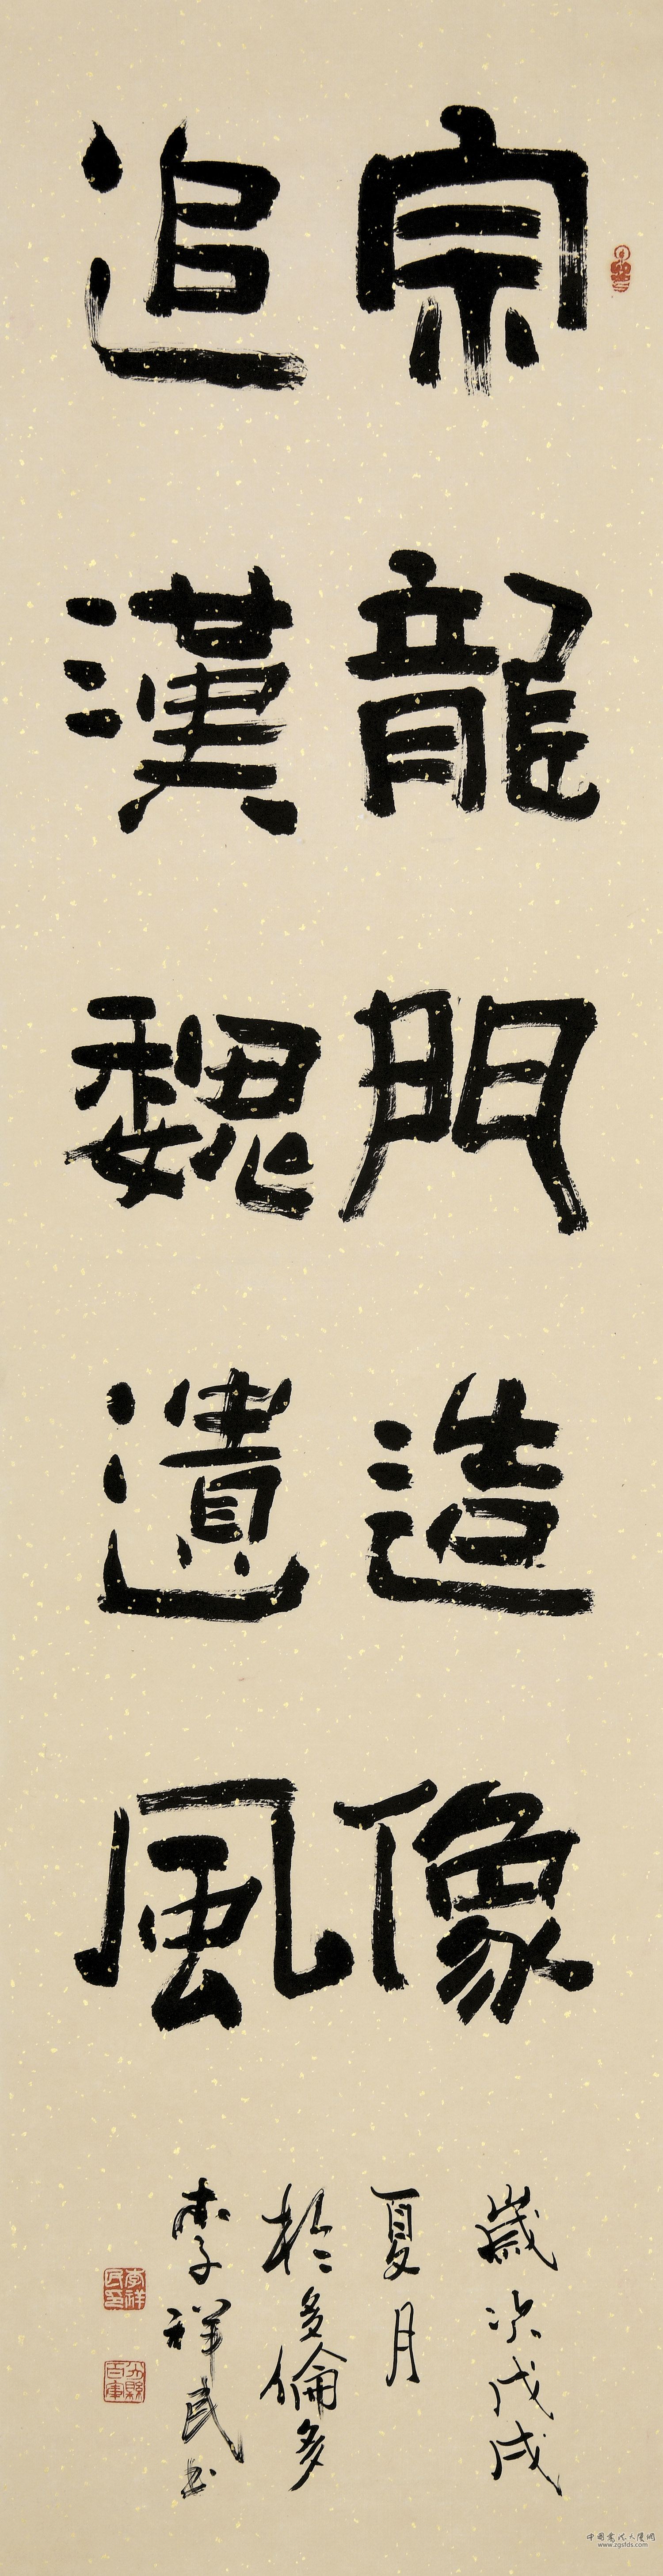 宗龍門造像
追漢魏遺風
歲次戊戌
夏月
於多倫多
李祥民書
李祥民印
中国书法人便网
www.zgsfds.com